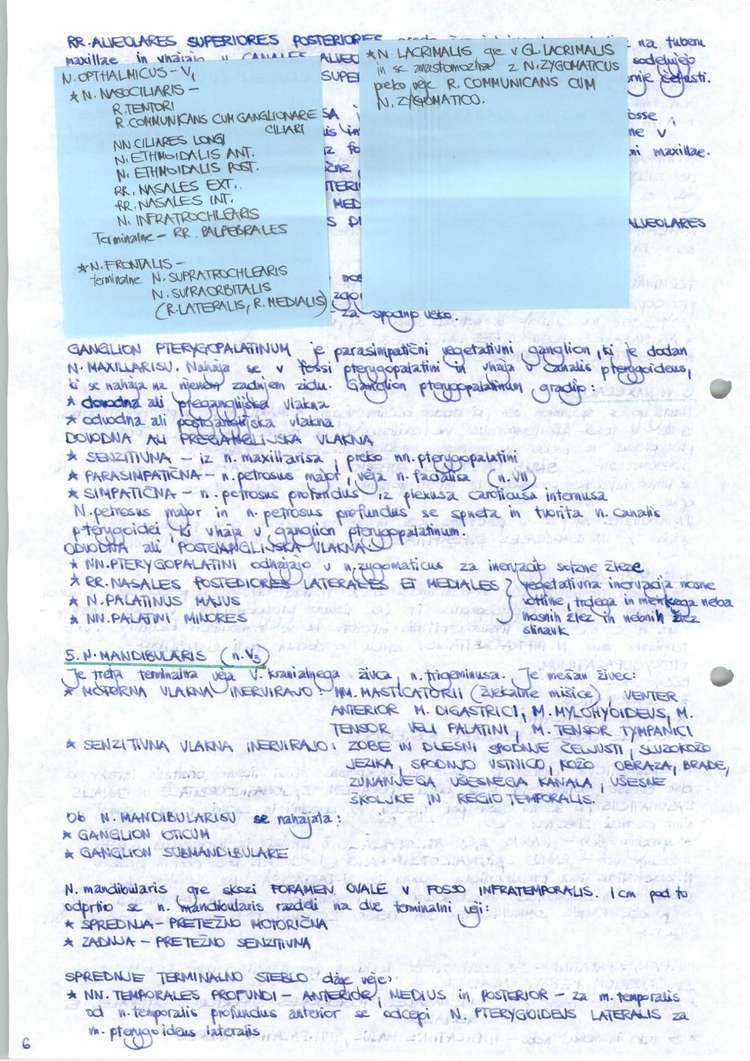 RR. ALVEOLARES SUPERIORES POSTERIORES na tuberu
maxillae in vhajajo v CANALES ALVEO sodelujejo
SUPE čeljusti.
N. OPTHALMICUS - V1
* N. NASOCILIARIS -
R. TENTORI
R. COMMUNICANS CUM GANGLIONARE
CILIARI
NN CILIARES LONGI
N. ETHMOIDALIS ANT.
N. ETHMOIDALIS POST.
RR. NASALES EXT.
RR. NASALES INT.
N. INFRATROCHLEARIS
Terminalne - RR. PALPEBRALES
* N. FRONTALIS -
terminalne N. SUPRATROCHLEARIS
N. SUPRAORBITALIS
(R. LATERALIS, R. MEDIALIS)
* N. LACRIMALIS gre v GL. LACRIMALIS
in se anastomozira z N. ZYGOMATICUS
preko veje R. COMMUNICANS CUM
N. ZYGOMATICO.
osse,
ne v
ni maxillae.
TERI
MED
ALVEOLARES
za spodnjo veko.
GANGLION PTERYGOPALATINUM je parasimpatični vegetativni ganglion, ki je dodan
N. MAXILLARISU. Nahaja se v fossi pterygopalatini in vhaja v canalis pterygoideus,
ki se nahaja na njenem zadnjem zidu. Ganglion pterygopalatinum gradijo:
* dovodna ali preganglijska vlakna
* odvodna ali postganglijska vlakna
DOVODNA ALI PREGANGLIJSKA VLAKNA
* SENZITIVNA - iz n. maxillarisa, preko nn. pterygopalatini
* PARASIMPATIČNA - n. petrosus major, veja n. facialisa (n. VII)
* SIMPATIČNA - n. petrosus profundus iz plexusa caroticusa internusa
N. petrosus major in n. petrosus profundus se spneta in tvorita n. canalis
pterygoidei, ki vhaja v ganglion pterygopalatinum.
ODVODNA ali POSTGANGLIJSKA VLAKNA
* NN. PTERYGOPALATINI odhajajo v n. zygomaticus za inervacijo solzne žleze
* RR. NASALES POSTEDIORES LATERALES ET MEDIALES } vegetativna inervacija nosne
* N. PALATINUS MAJUS votline, trdega in mehkega neba
* NN. PALATINI MINORES nosnih žlez in nebnih žlez
slinavk
5. N. MANDIBULARIS (n. V3)
Je tretja terminalna veja V. kranialnega živca, n. trigeminusa. Je mešan živec:
* MOTORNA VLAKNA INERVIRAJO: MM. MASTICATORII (žvekalne mišice), VENTER
ANTERIOR M. DIGASTRICI, M. MYLOHYOIDEUS, M.
TENSOR VELI PALATINI, M. TENSOR TYMPANICI
* SENZITIVNA VLAKNA INERVIRAJO: ZOBE IN DLESNI SPODNJE ČELJUSTI, SLUZOKOŽO
JEZIKA, SPODNJO USTNICO, KOŽO OBRAZA, BRADE,
ZUNANJEGA UŠESNEGA KANALA, UŠESNE
ŠKOLJKE IN REGIO TEMPORALIS.
Ob N. MANDIBULARISU se nahajata:
* GANGLION OTICUM
* GANGLION SUBMANDIBULARE
N. mandibularis gre skozi FORAMEN OVALE V FOSSO INFRATEMPORALIS. 1 cm pod to
odprtino se n. mandibularis razdeli na dve terminalni veji:
* SPREDNJA - PRETEŽNO MOTORIČNA
* ZADNJA - PRETEŽNO SENZITIVNA
SPREDNJE TERMINALNO STEBLO daje veje:
* NN. TEMPORALES PROFUNDI - ANTERIOR, MEDIUS in POSTERIOR - za m. temporalis
od n. temporalis profundus anterior se odcepi N. PTERYGOIDEUS LATERALIS za
m. pterygoideus lateralis
6